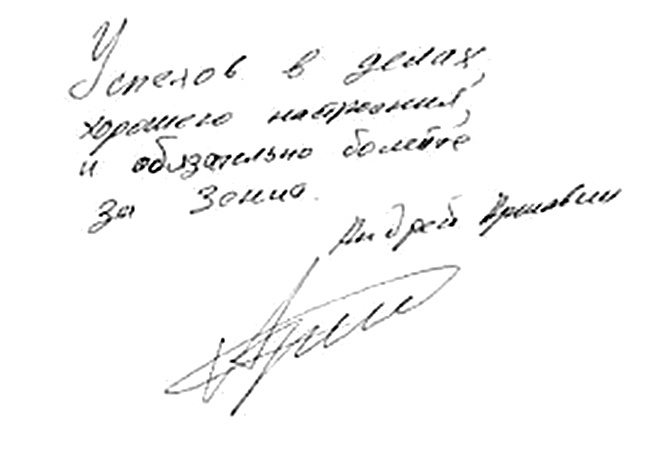 Успехов в делах,
хорошего настроения,
и обязательно болейте
за Зенит.
Андрей Аршавин